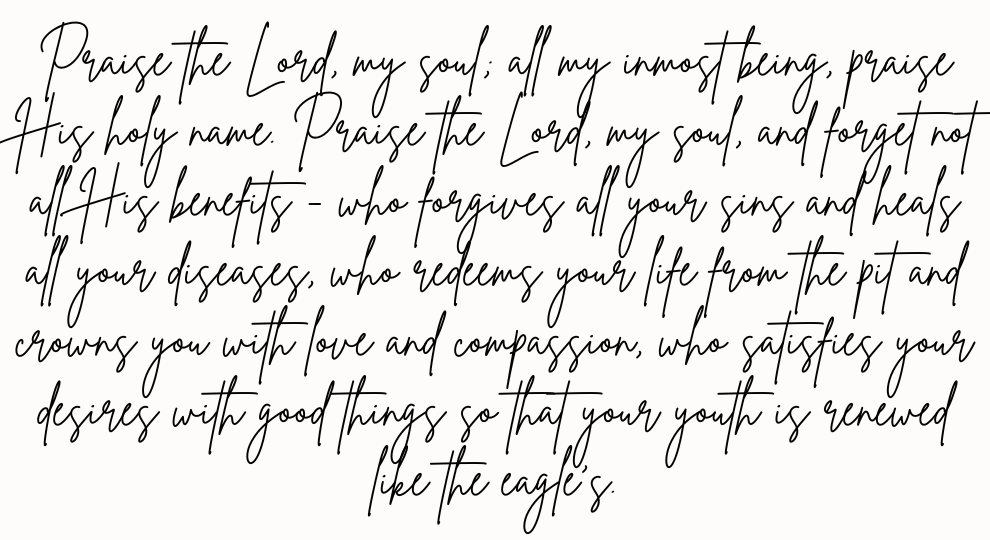 Praise the Lord, my soul; all my inmost being, praise
His holy name. Praise the Lord, my soul, and forget not
all His benefits - who forgives all your sins and heals
all your diseases, who redeems your life from the pit and
crowns you with love and compassion, who satisfies your
desires with good things so that your youth is renewed
like the eagle's.